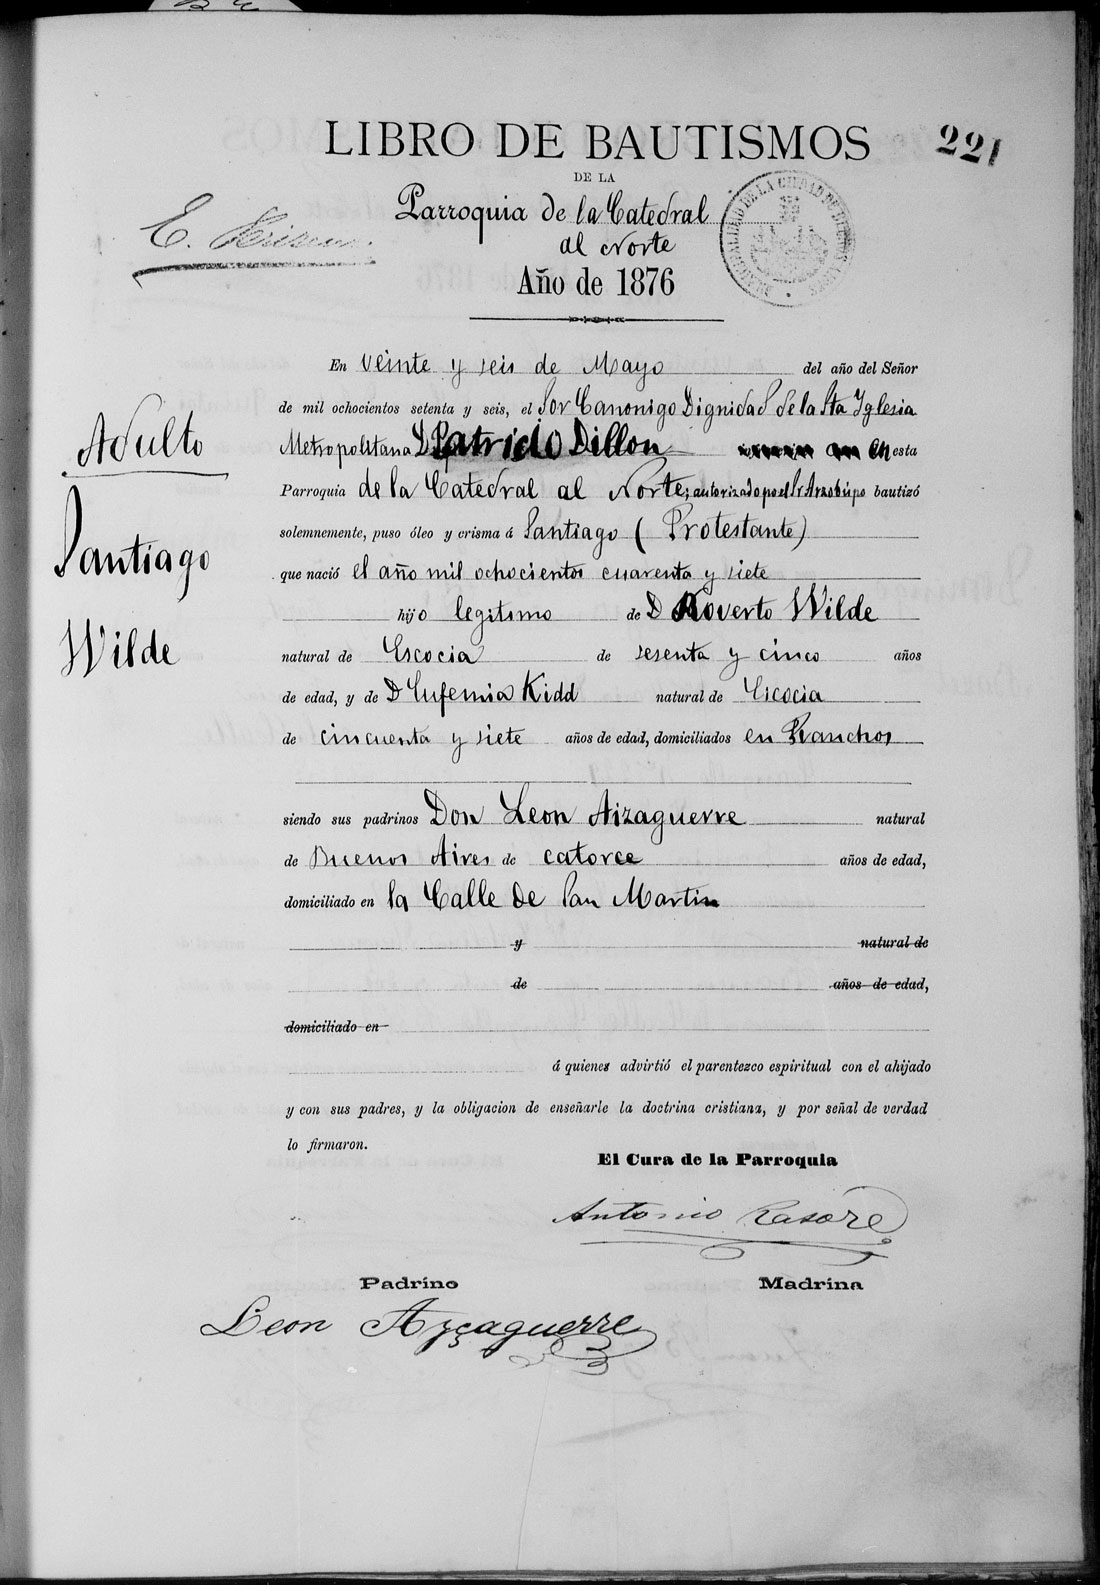 LIBRO DE BAUTISMOS
221
DE LA
Parroquia de la Catedral
al Norte
E.
Año de 1876
En veinte y seis de Mayo del año del Señor
de mil ochocientos setenta y seis, el Sor Canonigo Dignidad de la Sta Yglesia
Metropolitana D Patricio Dillon en esta
Parroquia de la Catedral al Norte; autorizado por el Sr Arzobispo bautizó
solemnemente, puso óleo y crisma á Santiago (Protestante)
que nació el año mil ochocientos cuarenta y siete
hijo legitimo de D Roverto Wilde
natural de Escocia de sesenta y cinco años
de edad, y de D Eufemia Kidd natural de Escocia
de cincuenta y siete años de edad, domiciliados en Ranchos
siendo sus padrinos Don Leon Aizaguerre natural
de Buenos Aires de catorce años de edad,
domiciliado en la Calle de San Martin
y natural de
de años de edad,
domiciliado en
á quienes advirtió el parentezco espiritual con el ahijado
y con sus padres, y la obligacion de enseñarle la doctrina cristiana, y por señal de verdad
lo firmaron.
El Cura de la Parroquia
Antonio Rasore
Padrino Madrina
Leon Ayzaguerre
Adulto
Santiago
Wilde